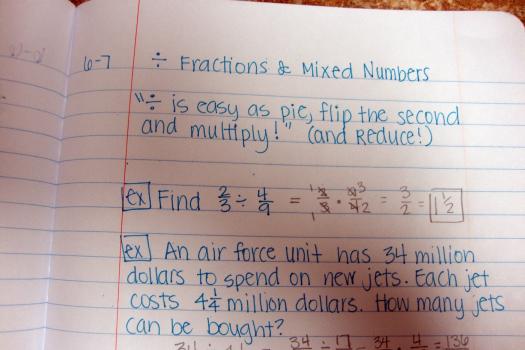 6-7 ÷ Fractions & Mixed Numbers
"÷ is easy as pie, flip the second
and multiply!" (and Reduce!)
ex Find 2/3 ÷ 4/9 = 2/3 · 9/4 = 3/2 = 1 1/2
ex An air force unit has 34 million
dollars to spend on new jets. Each jet
costs 4 1/4 million dollars. How many jets
can be bought?
34 17 34 4 = 136